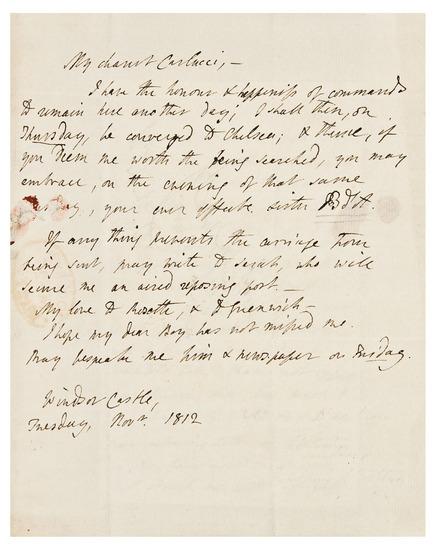 My dearest Carlucci, –
I have the honour & happiness of commands
to remain here another day; I shall then, on
Thursday, be conveyed to Chelsea; & thence, if
you deem me worth the being searched, you may
embrace, on the evening of that same
day, your ever affecte sister BdA.
If any thing prevents the carriage from
being sent, pray write to Sarah, who will
secure me an aired reposing port –
My love to Rosette, & to Greenwich –
I hope my dear Boy has not missed me.
Pray bespeake me him & newspaper on
Windsor Castle,
Tuesday, Novr. 1812